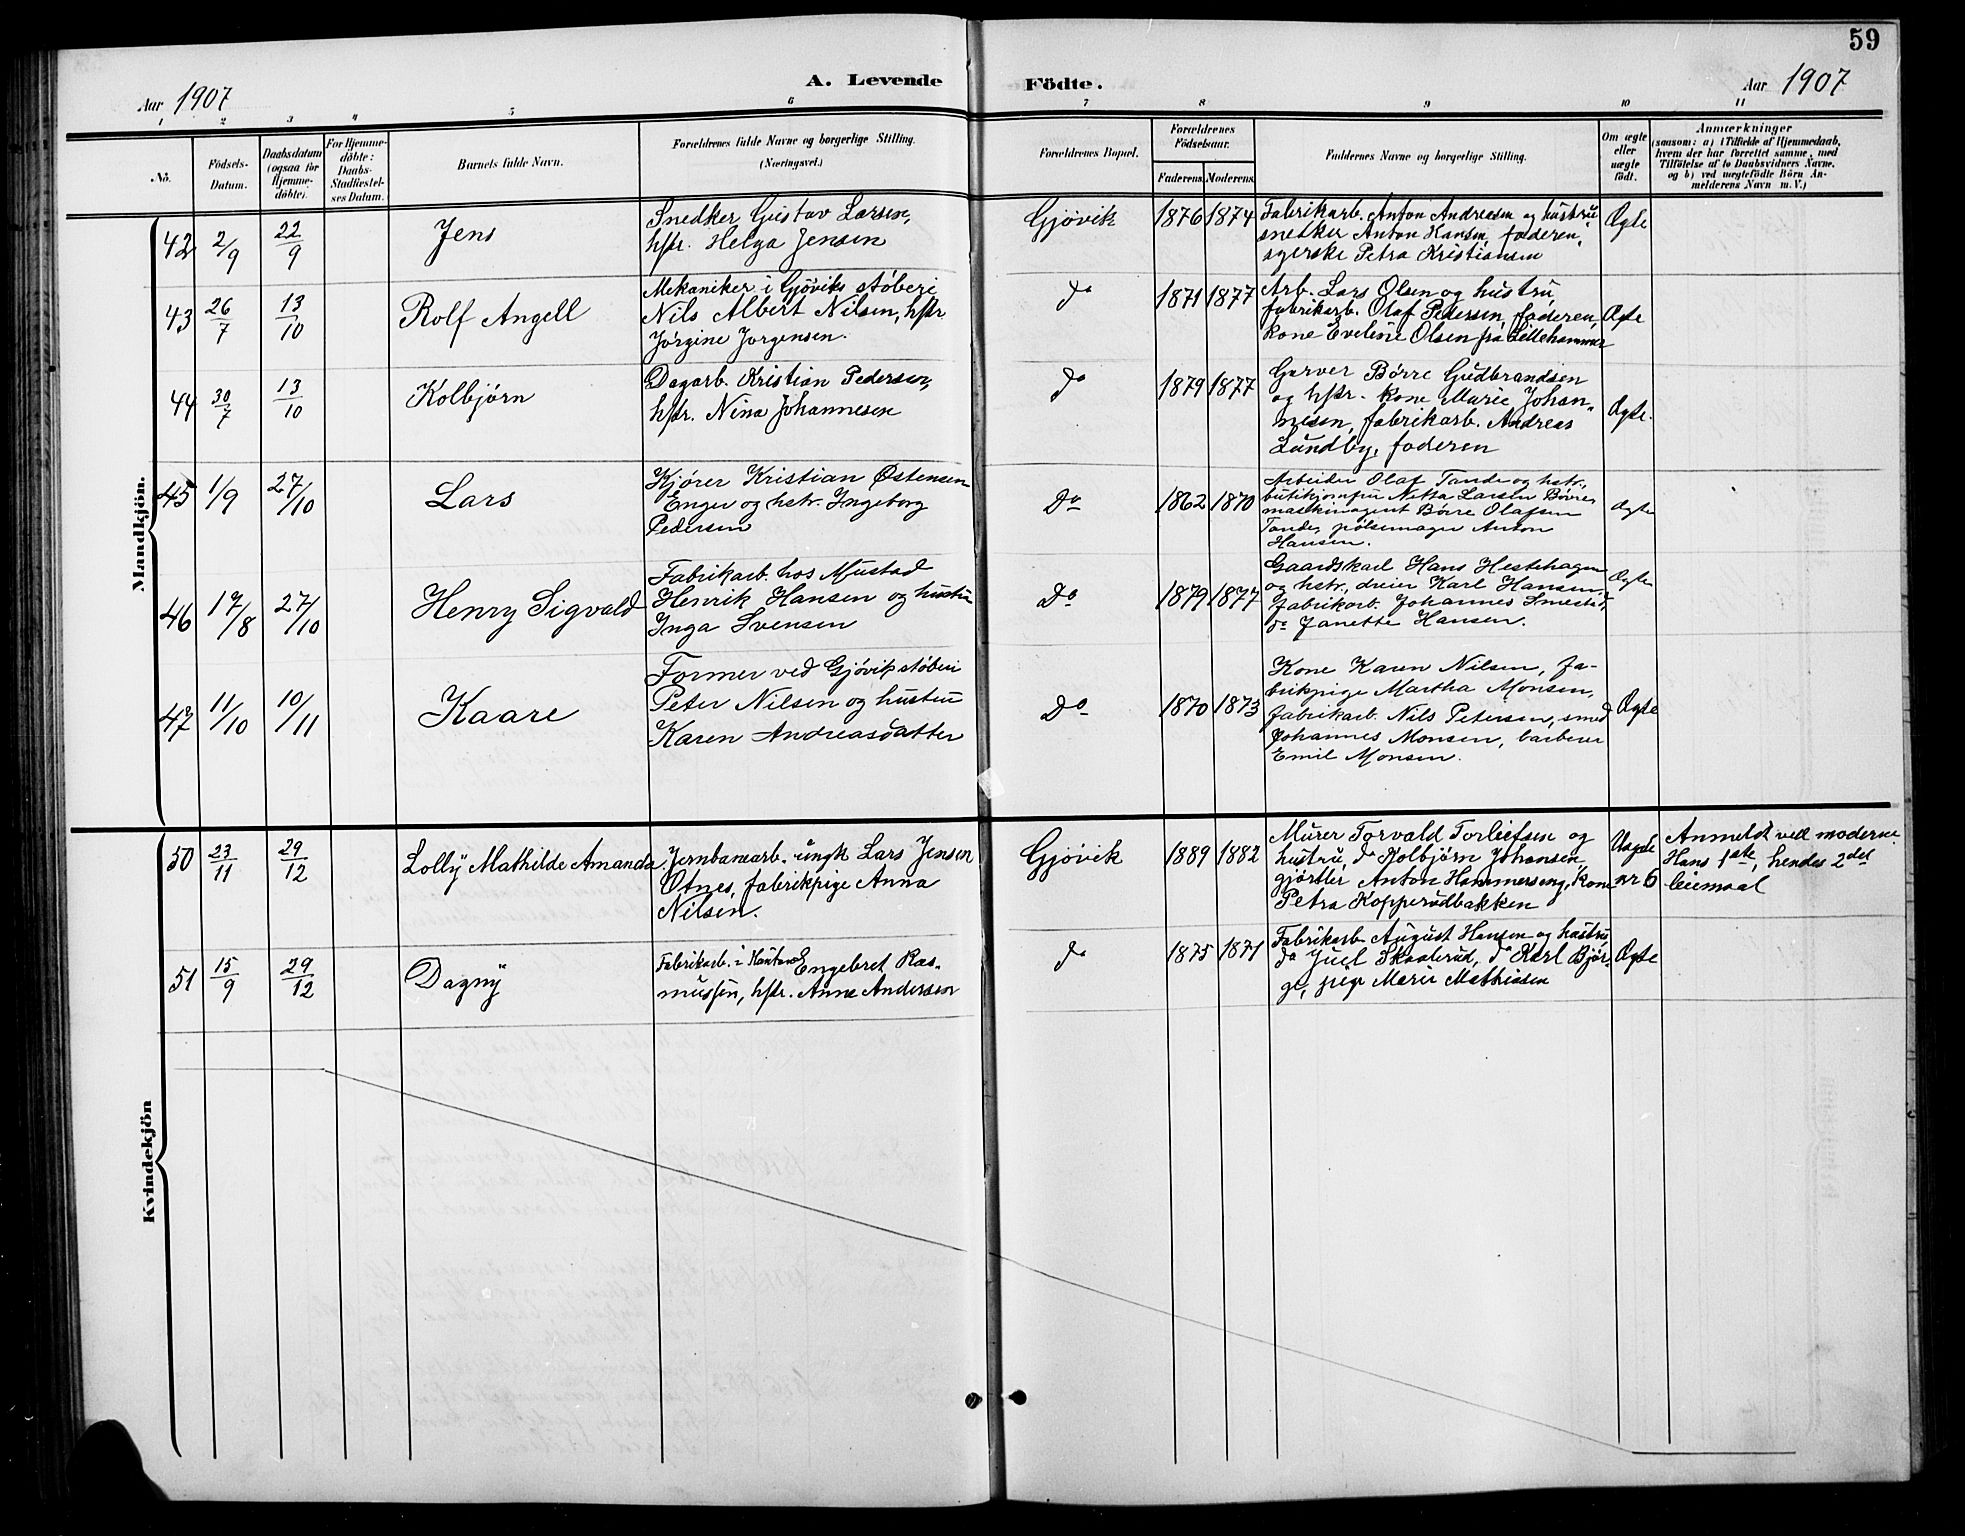 59
A. Levende Födte.
Aar 1907
Aar 1907
1 2 3 4 5 6 7 8 9 10 11
No.
Födsels-
Datum.
Daabsdatum
(ogsaa for
Hjemme-
döbte).
For Hjemme-
döbte:
Daabs-
Stadfæstel-
ses Datum.
Barnets fulde Navn.
Forældrenes fulde Navne og borgerlige Stilling.
(Næringsvei.)
Forældrenes Bopæl.
Forældrenes
Födselsaar.
Faderens.
Moderens.
Faddernes Navne og borgerlige Stilling.
Om ægte
eller
uægte
födt.
Anmærkninger
(saasom: a) i Tilfælde af Hjemmedaab,
hvem der har forrettet samme, med
Tilföielse af to Daabsvidners Navne,
og b) ved uægtefödte Börn An-
melderens Navn m. V.)
Mandkjön.
42 2/9 22/9 Jens
Snedker Gustav Larsen,
hstr. Helga Jensen
Gjøvik 1876 1874
Fabrikarb. Anton Andreasen og hustru
snedker Anton Hansen, faderen,
sgerske Petra Kristiansen
Ægte
43 26/7 13/10 Rolf Angell
Mekaniker i Gjøviks støberi
Nils Albert Nilsen, hstr
Jørgine Jørgensen.
do 1871 1877
Arb. Lars Olsen og hustru,
fabrikarb. Olaf Pedersen, faderen,
kone Eveline Olsen fra Lillehammer
Ægte
44 30/7 13/10 Kolbjørn
Dagarb. Kristian Pedersen,
hstr. Nina Johannesen
do 1879 1877
Garver Børre Gudbrandsen
og hstr. kone Marie Johan-
nesen, fabrikarb. Andreas
Lundby, faderen
Ægte.
45 1/9 27/10 Lars
Kjører Kristian Østensen
Enger og hstr. Ingeborg
Pedersen
Do 1862 1870
Arbeider Olaf Tande og hstr.,
butikjomfru Netta Larsen Børre,
maskinagent Børre Olafsen
Tande, pølsemager Anton
Hansen.
Ægte
46 17/8 27/10 Henry Sigvald
Fabrikarb. hos Mustad
Henrik Hansen og hustru
Inga Svensen
Do 1879 1877
Gaardskarl Hans Hestehagen
og hstr., dreier Karl Hansen,
fabrikarb. Johannes Smestad,
do Janette Hansen.
Ægte
47 11/10 10/11 Kaare
Former ved Gjøvik støberi
Peter Nilsen og hustru
Karen Andreasdatter
Do 1870 1873
Kone Karen Nilsen, fa-
brikpige Martha Monsen,
fabrikarb. Nils Petersen, smed
Johannes Monsen, barberer
Emil Monsen.
Ægte
Kvindekjön
50 23/11 29/12 Lolly Mathilde Amanda
Jernbanearb. ungk Lars Jensen
Otnes, fabrikpige Anna
Nilsen.
Gjøvik 1889 1882
Murer Torvald Torleifsen og
hustru, do Kolbjørn Johansen,
gjørtler Anton Hammerseng, kone
Petra Kopperudbakken
Uægte
nr 6
Anmeldt ved moderen.
Hans 1ste, hendes 2det
leiemaal
51 15/9 29/12 Dagny
Fabrikarb. i Engebret Ras-
mussen, hstr. Anna Andersen
do 1875 1871
Fabrikarb August Hansen og hustru
do Juel Skaalerud, do Karl Bjør-
ge, pige Marie Mathiesen
Ægte